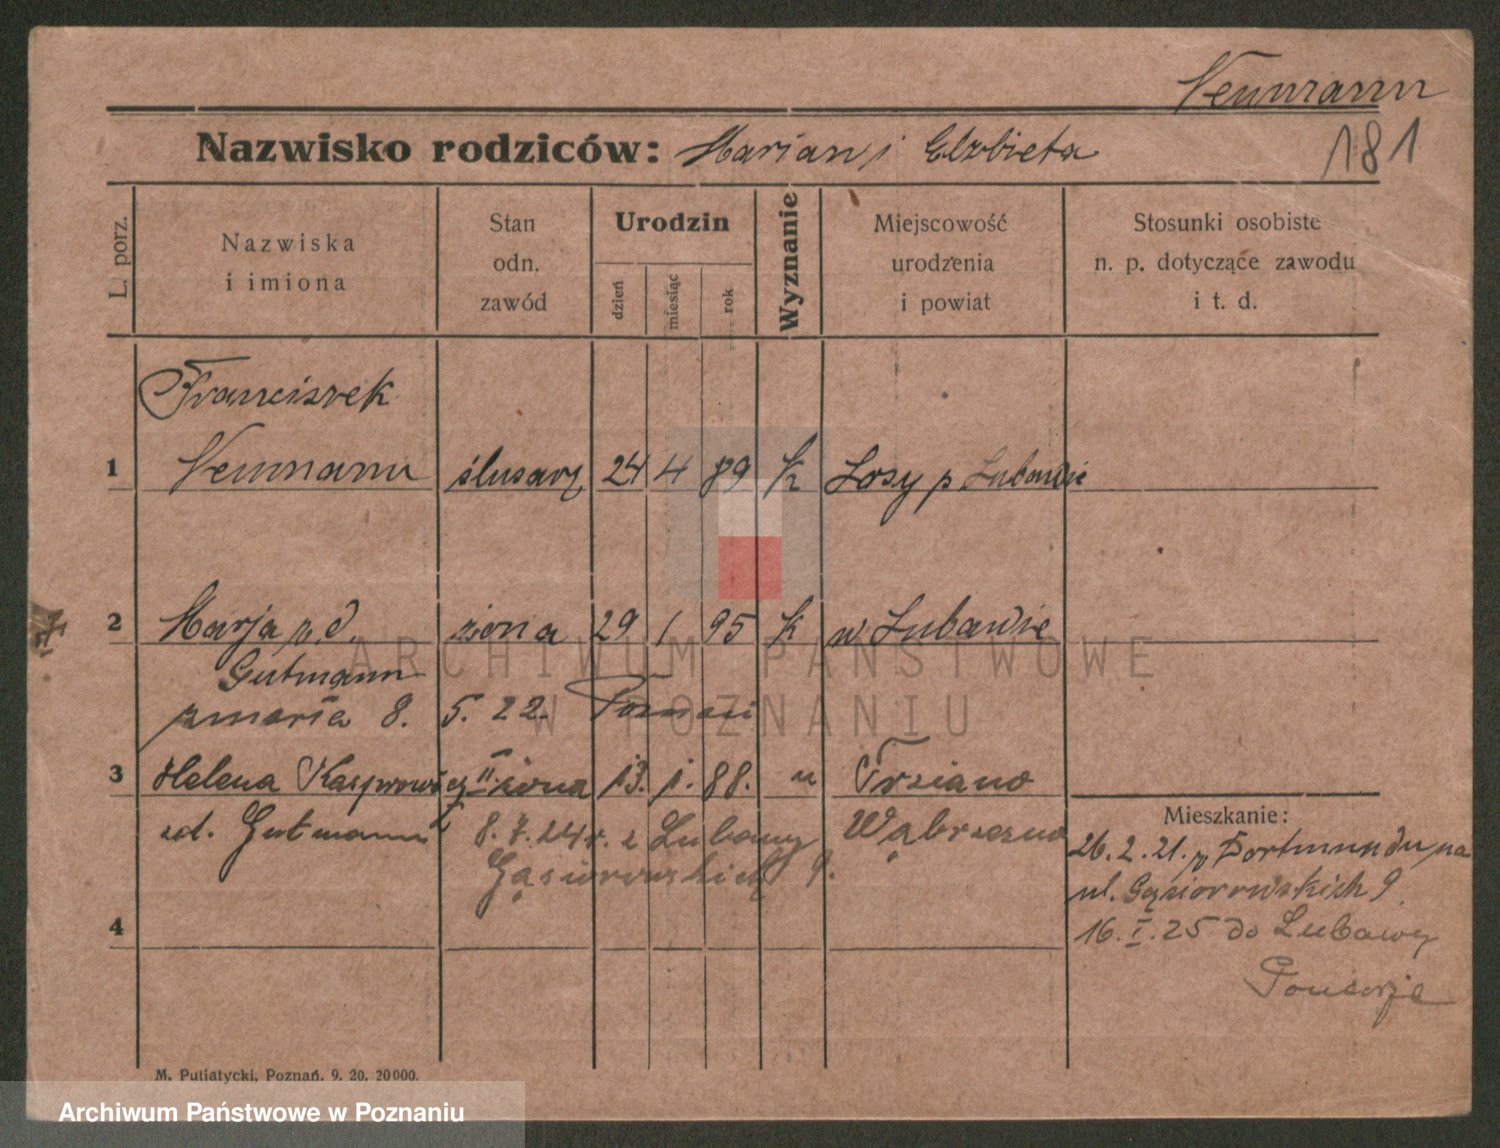 Neumann
Nazwisko rodziców: Marjan i Elzbieta
181
L. porz.
Nazwiska
i imiona
Stan
odn.
zawód
Urodzin
dzień
miesiąc
rok
Wyznanie
Miejscowość
urodzenia
i powiat
Stosunki osobiste
n. p. dotyczące zawodu
i t. d.
Franciszek
1 Neumann ślusarz 24 4 89 k Losy p Lubawie
2 Marja p. d. żona 29 1 95 k w Lubawie
Gutmann
zmarła 8. 5. 22. Poznań
3 Helena Kasprowicz II. żona 13. 1. 88. u Trziano
zd. Gutmann 8. 7. 24 r. z Lubawy Wąbrzezno
Gąsiorowskich 9.
4
Mieszkanie:
26. 2. 21. p Dortmundu na
ul. Gąsiorowskich 9.
16. I. 25 do Lubawy
M. Putiatycki, Poznań. 9. 20. 20000.
ARCHIWUM PAŃSTWOWE
W POZNANIU
Archiwum Państwowe w Poznaniu